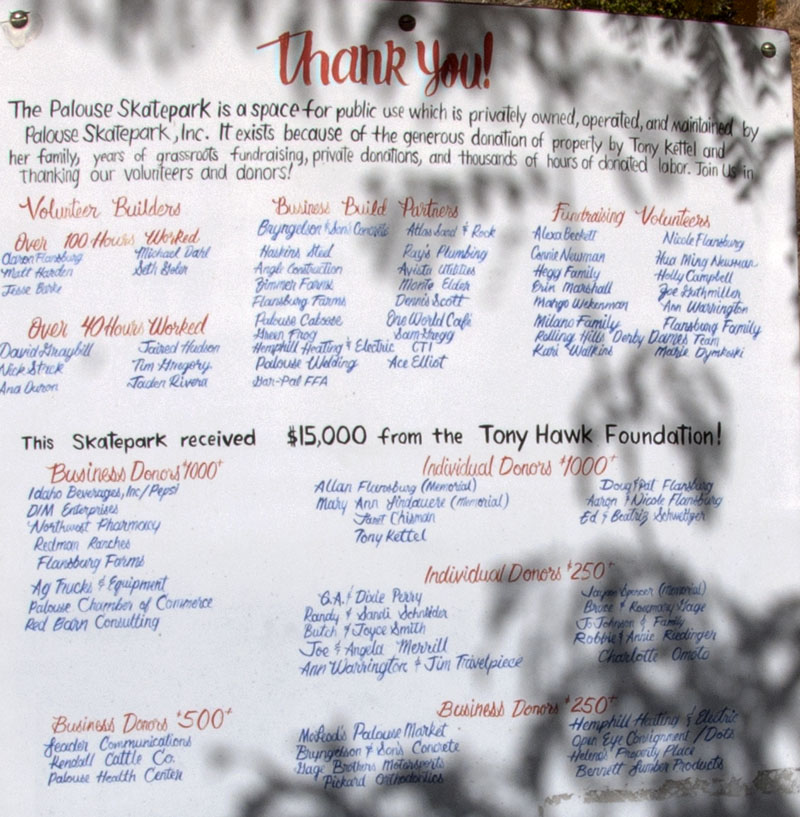 Thank You!
The Palouse Skatepark is a space for public use which is privately owned, operated, and maintained by
Palouse Skatepark, Inc. It exists because of the generous donation of property by Tony Kettel and
her family, years of grassroots fundraising, private donations, and thousands of hours of donated labor. Join Us in
thanking our volunteers and donors!
Volunteer Builders
Over 100 Hours Worked
Aaron Flansburg
Matt Harden
Jesse
Michael Dahl
Seth
Over 40 Hours Worked
David Graybill
Nick
Ana
Jaired Hudson
Tim Gregory
Jaden Rivera
Business Build Partners
Bryngelson & Sons Concrete
Haskins Steel
Angle Construction
Zimmer Farms
Flansburg Farms
Palouse Caboose
Green Frog
Hemphill Heating & Electric
Palouse Welding
Gar-Pal FFA
Atlas Sand & Rock
Ray's Plumbing
Avista Utilities
Monte Elder
Dennis Scott
One World Café
Sam Gregg
CTI
Ace Elliot
Fundraising Volunteers
Alexa Beckett
Connie Newman
Hegg Family
Erin Marshall
Margo
Milano Family
Rolling Hills Derby Dames Team
Kari Watkins
Nicole Flansburg
Hua Ming Newman
Holly Campbell
Zoe Guthmiller
Ann Warrington
Flansburg Family
Marie Dymkoski
This Skatepark received $15,000 from the Tony Hawk Foundation!
Business Donors $1000+
Idaho Beverages, Inc/Pepsi
DIM Enterprises
Northwest Pharmacy
Redman Ranches
Flansburg Farms
Ag Trucks & Equipment
Palouse Chamber of Commerce
Red Barn Consulting
Individual Donors $1000+
Allan Flansburg (Memorial)
Mary Ann (Memorial)
Janet Chisman
Tony Kettel
Doug & Pat Flansburg
Aaron & Nicole Flansburg
Ed & Beatriz Schweitzer
Individual Donors $250+
G.A. & Dixie Perry
Randy & Sandi Schneider
Butch & Joyce Smith
Joe & Angela Merrill
Ann Warrington & Jim Travelpiece
Spencer (Memorial)
Bruce & Rosemary Gage
Johnson & Family
Robbie & Annie Riedinger
Charlotte Omoto
Business Donors $500+
Leader Communications
Kendall Cattle Co.
Palouse Health Center
Business Donors $250+
McLeod's Palouse Market
Bryngelson & Sons Concrete
Gage Brothers Motorsports
Pickard Orthodontics
Hemphill Heating & Electric
Open Eye Consignment / Dots
Helena's Property Place
Bennett Lumber Products